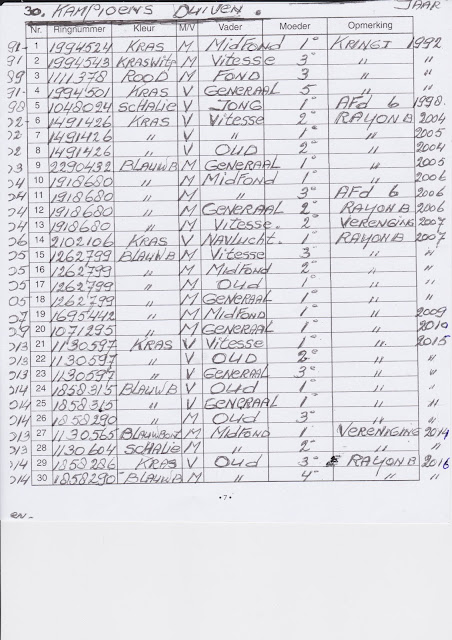 30. KAMPIOENS DUIVEN. JAAR
Nr. Ringnummer Kleur M/V Vader Moeder Opmerking
91- 1 1994524 KRAS M MIDFOND 1° KRINGT 1992
91- 2 1994543 KRASWITP M VITESSE 3° " "
89 3 1111378 ROOD M FOND 3 " "
91- 4 1994501 KRAS V GENERAAL 5 " "
98 5 1048024 SCHALIE V JONG 1° AFd 6 1998.
02- 6 1491426 KRAS V VITESSE 2° RAYON B 2004
02- 7 1491426 " V " 1° " 2005
02 8 1491426 " V OUD 2° " 2004
03 9 2290432 BLAUWB M GENERAAL 1° " 2005
04 10 1918680 " M MIDFOND 1° " 2006
04 11 1918680 " M " 3° AFd 6 2006
04 12 1918680 " M GENERAAL 2° RAYON B 2006
04 13 1918680 " M VITESSE. 2° VERENGING 2007
06 14 2102106 KRAS V NAVLUCHT. 1° RAYON B 2007
05 15 1262799 BLAUWB M VITESSE 3° " "
05 16 1262799 " M MIDFOND 2° " "
05 17 1262799 " M OUD 1° " "
05 18 1262799 " M GENERAAL 1° " "
07 19 1695442 " M MIDFOND 1° " 2009
09 20 1071295 " M GENERAAL 1° " 2010
013 21 1130597 KRAS V VITESSE 1° " 2015
013 22 1130597 " V OUD 2° " "
013 23 1130597 " V GENERAAL 3° " "
014 24 1858315 BLAUWB V OUD 1° " "
014 25 1858315 " V GENERAAL 1° " "
014 26 1858290 " M OUD 3° " "
013 27 1130565 BLAUWBONT M MIDFOND 1° VERENIGING 2014
013 28 1130604 SCHALIE M " 2° " "
014 29 1858286 KRAS V OUD 3° RAYON B 2016
014 30 1858290 BLAUWB M " 4° " "
• 7 •